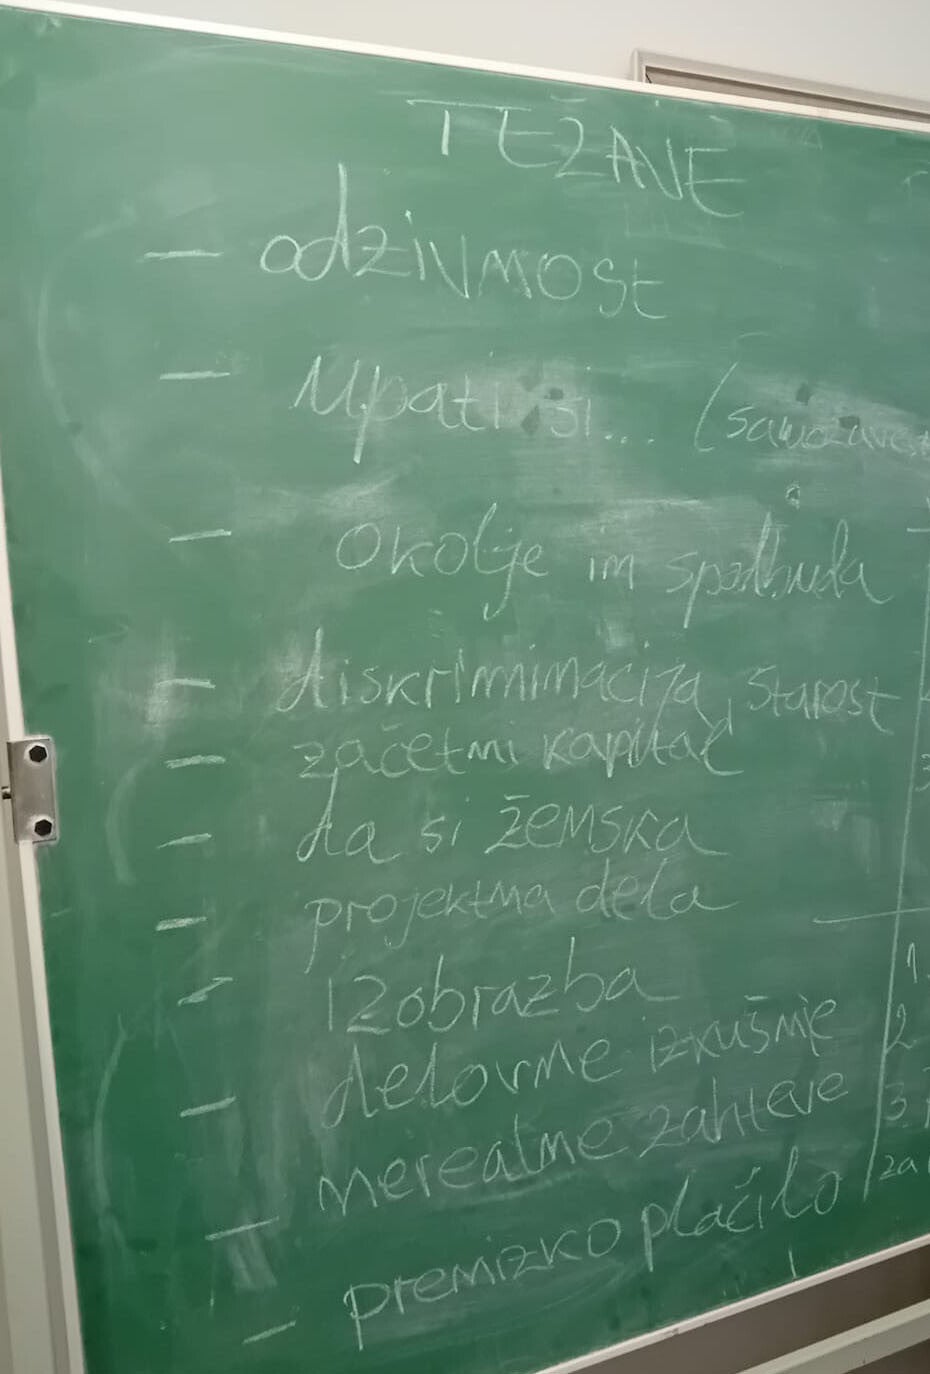 TEŽAVE
- odzivnost
- upati si... (samozavest
- okolje in spodbuda
- diskriminacija, starost
- začetni kapital
- da si ženska
- projektna dela
- izobrazba
- delovne izkušnje
- nerealne zahteve
- prenizko plačilo
1.
2
3.
za